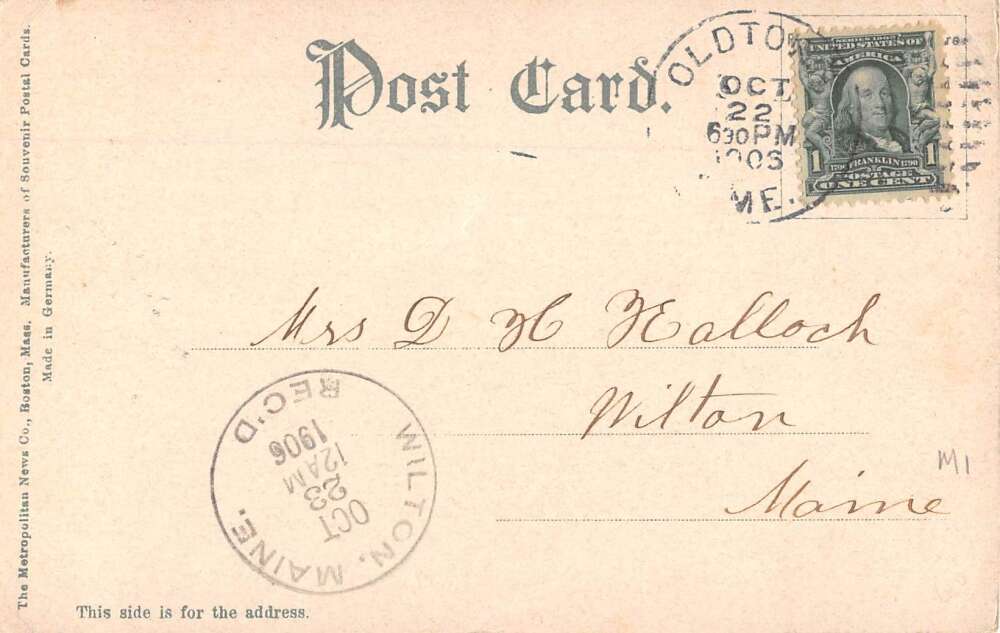 Post Card.
OLDTOW
OCT
22
630PM
1906
ME.
SERIES 1902
UNITED STATES OF
AMERICA
1706 FRANKLIN 1790
1 POSTAGE 1
ONE CENT
Mrs D H Halloch
Wilton
Maine
M1
WILTON, MAINE.
OCT
23
12AM
1906
REC'D
This side is for the address.
The Metropolitan News Co., Boston, Mass. Manufacturers of Souvenir Postal Cards.
Made in Germany.